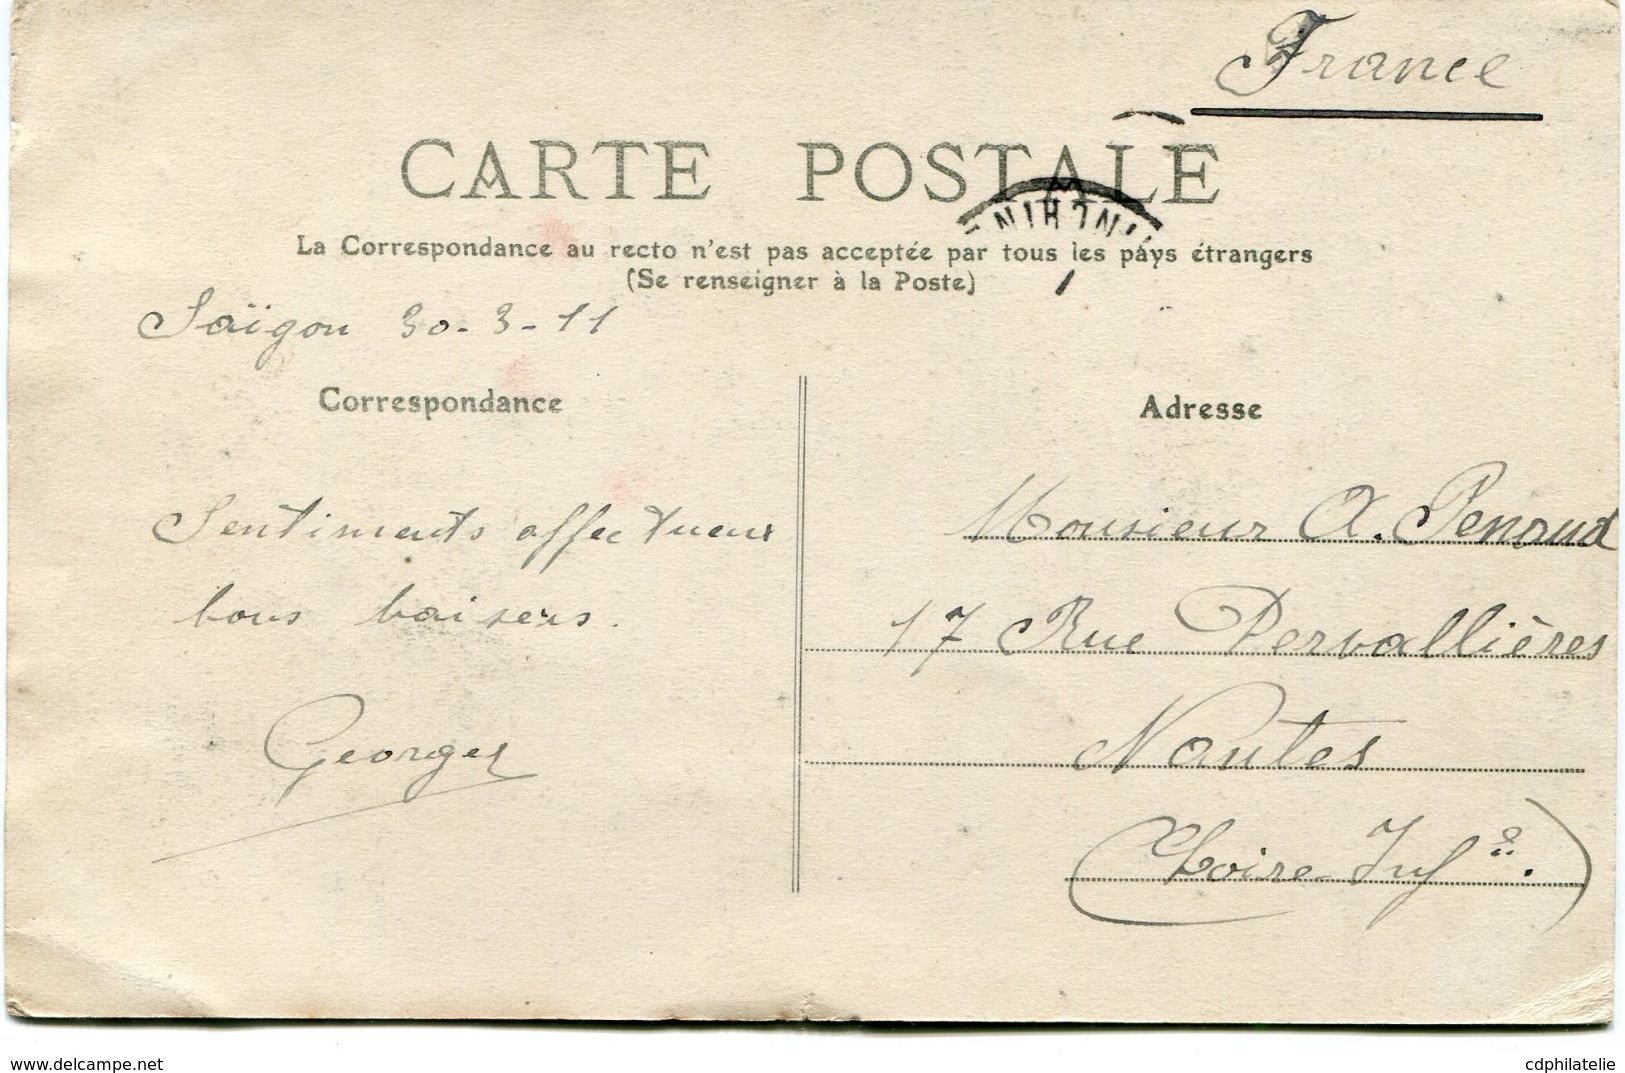 France
CARTE POSTALE
La Correspondance au recto n'est pas acceptée par tous les pays étrangers
(Se renseigner à la Poste)
Saïgon 30-3-11
Correspondance
Sentiments affectueux
bons baisers.
Georges
Adresse
Monsieur A. Penaud
17 Rue Pervallières
Nantes
(Loire-Infre.)
www.delcampe.net
cdphilatelie